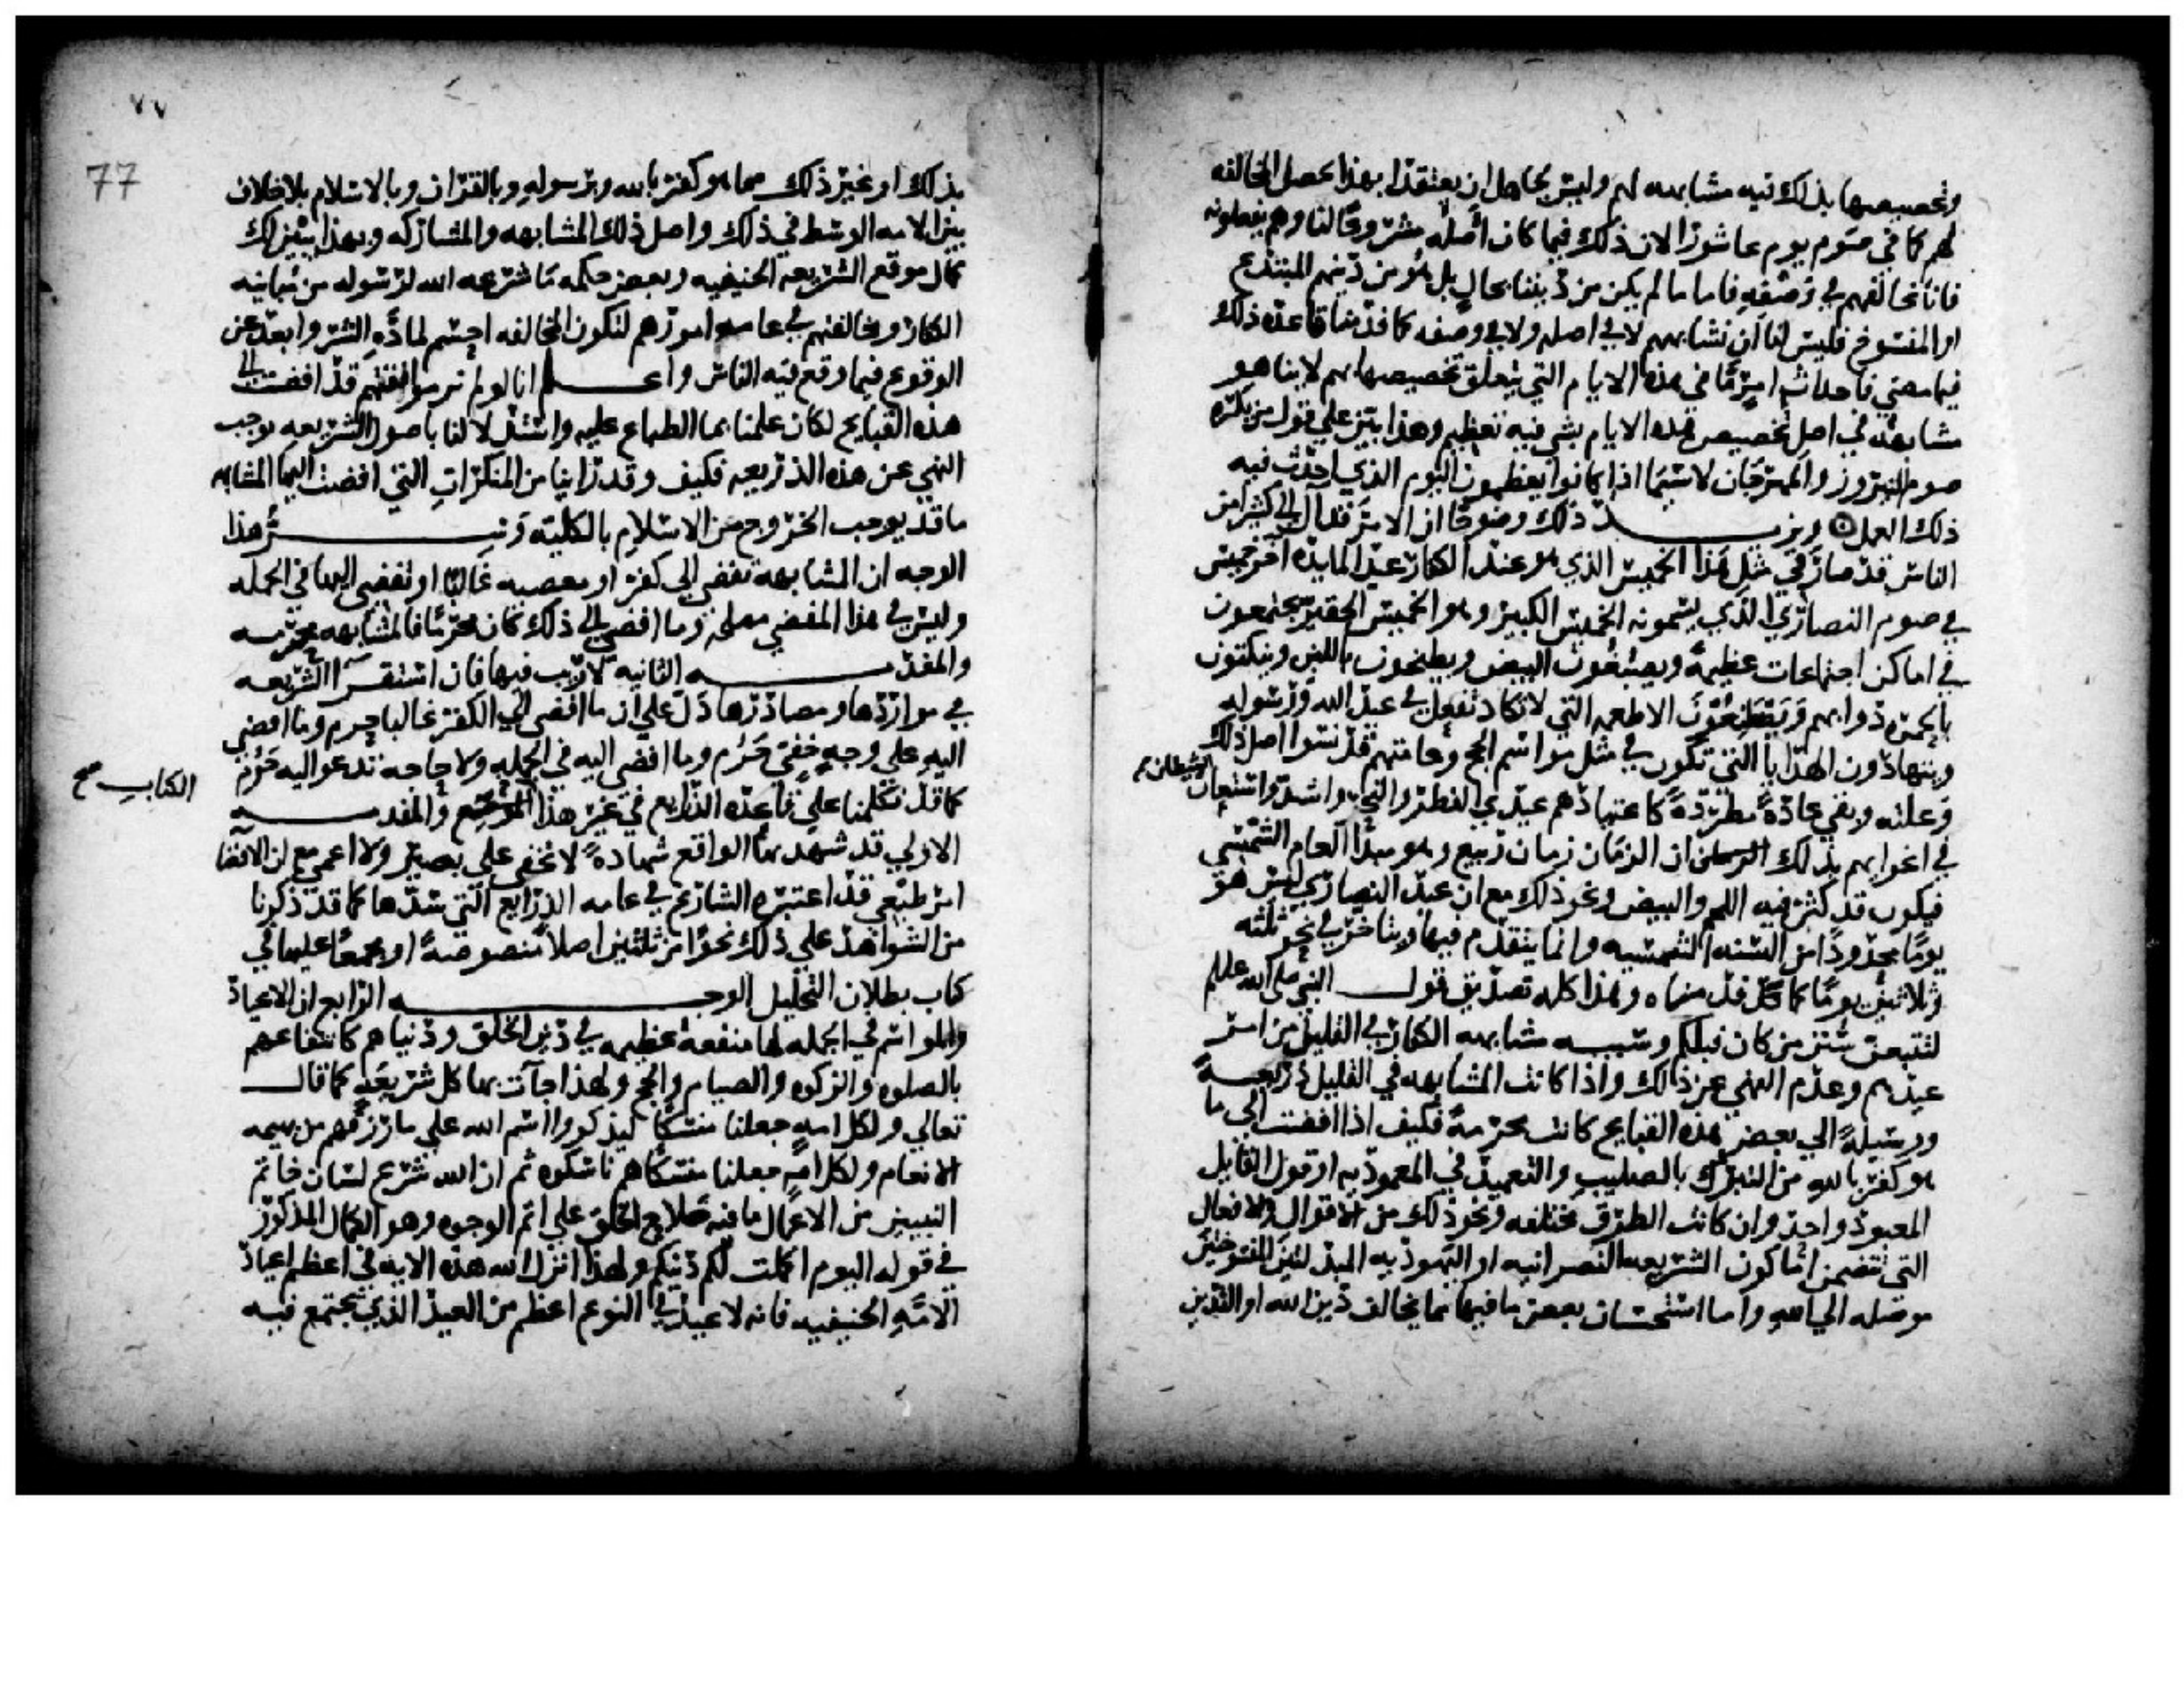 وتخصيصها بذلك فيه مشابهه لهم وليس لجاهل ان يعتقد ان بهذا تحصل المخالفه
لهم كما في صوم يوم عاشورا لان ذلك فيما كان اصله مشروعا لنا وهم يفعلونه
فانا نخالفهم في وصفه فاما ما لم يكن من ديننا بحال بل هو من دينهم المبتدع
او المنسوخ فليس لنا ان نشابههم لا في اصله ولا في وصفه كما قدمنا قاعده ذلك
فيما مضي فاحداث امر ما في هذه الايام التي يتعلق تخصيصها بهم لا بنا هو
مشابهه في اصل تخصيص هذه الايام بشي فيه تعظيم وهذا بين علي قول من يكره
صوم النيروز والمهرجان لا سيما اذا كانوا يعظمون اليوم الذي احدث فيه
ذلك العمل ويزيد ذلك وضوحا ان الامر قد ال الي كثير من
الناس قد صار في مثل هذا الخميس الذي هو عند الكفار عيد المايده اخر خميس
في صوم النصاري الذي يسمونه الخميس الكبير وهو الخميس الحقير يجتمعون
في اماكن اجتماعات عظيمة ويصبغون البيض ويطبخون باللبن وينكتون
بالحمره دوابهم ويصطنعون الاطعمه التي لا تكاد تفعل في عيد الله ورسوله
ويتهادون الهدايا التي تكون في مثل مواسم الحج وعامتهم قد نسوا اصل ذلك
وعلته وبقي عادة مطردة كاعتيادهم عيدي الفطر والنحر واشد واستعان الشيطان
في اغوايهم بذلك ان الزمان زمان ربيع وهو مبدا العام الشمسي
فيكون قد كثر فيه اللحم والبيض ونحو ذلك مع ان عيد النصاري ليس هو
يوما محدودا من السنه الشمسيه وانما يتقدم فيها ويتاخر في نحو ثلثه
وثلاثين يوما كما قد قدمناه وهذا كله تصديق قول النبي صلى الله عليه وسلم
لتتبعن سنن من كان قبلكم وسببه مشابهه الكفار في القليل من امر
عيدهم وعدم النهي عن ذلك واذا كانت المشابهه في القليل ذريعة
ووسيلة الي بعض هذه القبايح كانت محرمة فكيف اذا افضت الي ما
هو كفر بالله من التبرك بالصليب والتعميد في المعموديه او قول القايل
المعبود واحد وان كانت الطرق مختلفه ونحو ذلك من الاقوال والافعال
التي تتضمن اما كون الشريعه النصرانيه او اليهوديه المبدلتين المنسوختين
موصله الي الله واما استحسان بعض ما فيها مما يخالف دين الله او التدين
٧٧
77
بذلك او غير ذلك مما هو كفر بالله وبرسوله وبالقران وبالاسلام بلا خلاف
بين الامه الوسط في ذلك واصل ذلك المشابهه والمشاركه وبهذا يتبين لك
كمال موقع الشريعه الحنيفيه وبعض حكمه ما شرعه الله لرسوله من مباينه
الكفار ومخالفتهم في عامه امورهم لتكون المخالفه احسم لماده الشر وابعد عن
الوقوع فيما وقع فيه الناس واعلم انا لو لم نر موافقتهم قد افضت الي
هذه القبايح لكان علمنا بما الطباع عليه واستدلالنا باصول الشريعه يوجب
النهي عن هذه الذريعه فكيف وقد راينا من المنكرات التي افضت اليها المشابهه
ما قد يوجب الخروج من الاسلام بالكليه وسر هذا
الوجه ان المشابهه تفضي الي كفر او معصيه غالبا او تفضي اليهما في الجمله
وليس في هذا المفضي مصلحه وما افضي الي ذلك كان محرما فالمشابهه محرمه
والمقدمه الثانيه لا ريب فيها فان استقرا الشريعه
في مواردها ومصادرها دل علي ان ما افضي الي الكفر غالبا حرم وما افضي
اليه علي وجه خفي حرم وما افضي اليه في الجمله ولا حاجه تدعوا اليه حرم
كما قد تكلمنا علي قاعده الذرايع في غير هذا والمقدمه
الكتاب صح
الاولي قد شهد بها الواقع شهادة لا تخفي علي بصير ولا اعمي مع ان الافضا
امر طبعي قد اعتبره الشارع في عامه الذرايع التي سدها كما قد ذكرنا
من الشواهد علي ذلك نحوا من ثلثين اصلا منصوصة او مجمعا عليها في
كتاب بطلان التحليل الوجه الرابع ان الاعياد
والمواسم في الجمله لها منفعة عظيمه في دين الخلق ودنياهم كانتفاعهم
بالصلوه والزكوه والصيام والحج ولهذا جآت بها كل شريعه كما قال
تعالي ولكل امه جعلنا منسكا ليذكروا اسم الله علي ما رزقهم من بهيمه
الانعام ولكل امه جعلنا منسكا هم ناسكوه ثم ان الله شرع لسان خاتم
النبيين من الاعمال ما فيه صلاح الخلق علي اتم الوجوه وهو الكمال المذكور
في قوله اليوم اكملت لكم دينكم ولهذا انزل الله هذه الايه في اعظم اعياد
الامه الحنيفيه فانه لا عيد في النوع اعظم من العيد الذي يجتمع فيه